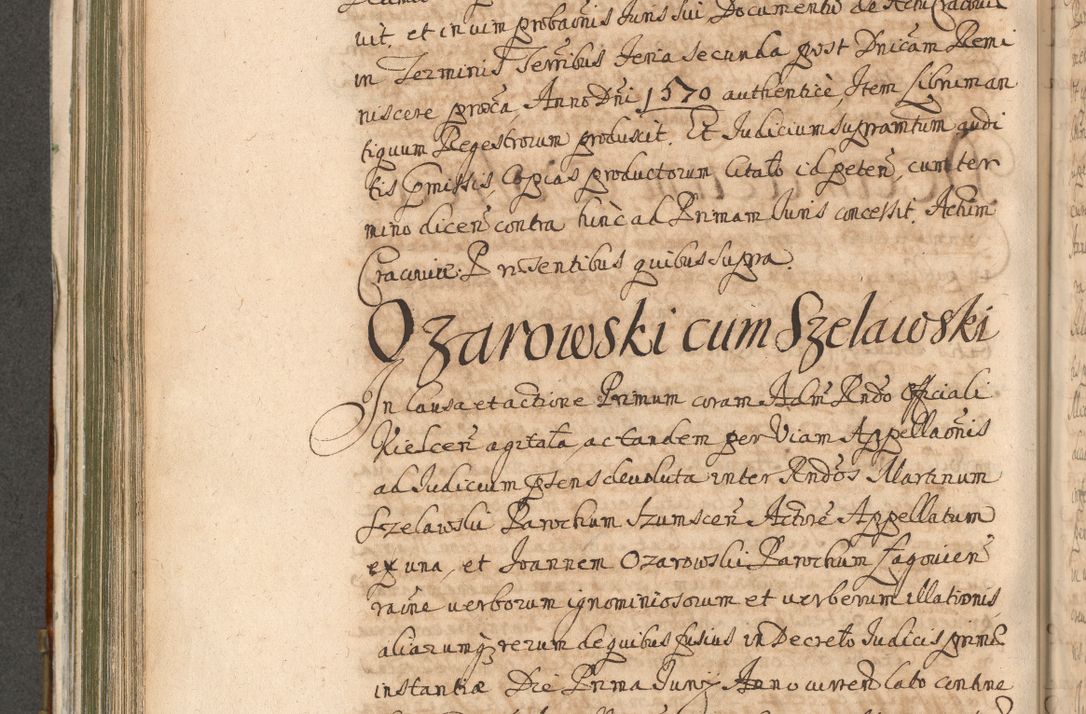 vit, et in vim probaõnis Juris sui Documentũ de Actu Cracovi
in Terminis Terr̃ibus feria secunda post Dnicam Remi
niscere proxa, Anno Dñi 1570 authenticè, Item Librum an
tiquum Regestrorum produxit. Et Judicium supramtum audi
tis pmissis, Copias productorum Citato id peteñ, cum ter
mino diceñ contra hinc ad Primam Juris concessit. Actum
Cracoviæ. Præsentibus quibus supra.
Ozarowski cum Szelawski
In causa et actione Primum coram Adm̃ Rndo Officiali
Kielceñ agitata, ac tandem per Viam Appellaõnis
ad Judicium p̃sens devoluta inter Rndos Martinum
Szelawski Parochum Szumsceñ Actorẽ Appellatum
ex una, et Joannem Ozarowski Parochum Łagovieñ
raõne verborum ignominiosorum et verberum illationis
aliarumq3 rerum de quibus fusius in Decreto Judicis primæ
instantiæ Die Prima Junij Anno currenti lato contine